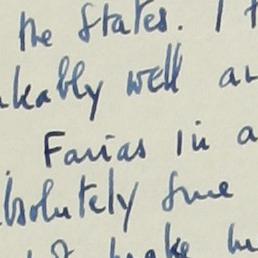 the States. I
kably well an
Farias in a
bsolutely fine
broke